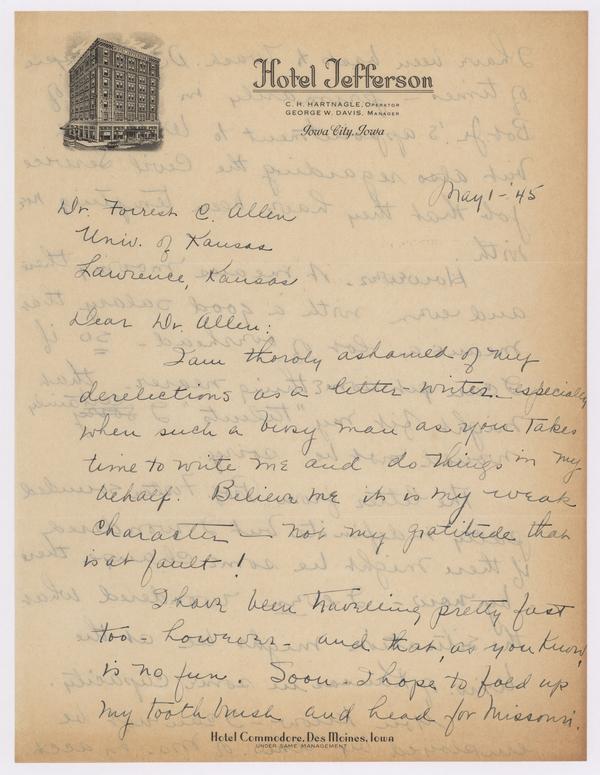 Hotel Jefferson
C. H. HARTNAGLE, OPERATOR
GEORGE W. DAVIS, MANAGER
Iowa City, Iowa
May 1 - '45
Dr. Forrest C. Allen
Univ. of Kansas
Lawrence, Kansas
Dear Dr. Allen:
I am thoroly ashamed of my
derelections as a letter-writer - especially
when such a busy man as you takes
time to write me and do things in my
behalf. Believe me it is my weak
character - not my gratitude that
is at fault!
I have been traveling pretty fast
too - however - and that, as you know,
is no fun. Soon - I hope to fold up
my tooth brush and head for Missouri.
Hotel Commodore, Des Moines, Iowa
UNDER SAME MANAGEMENT